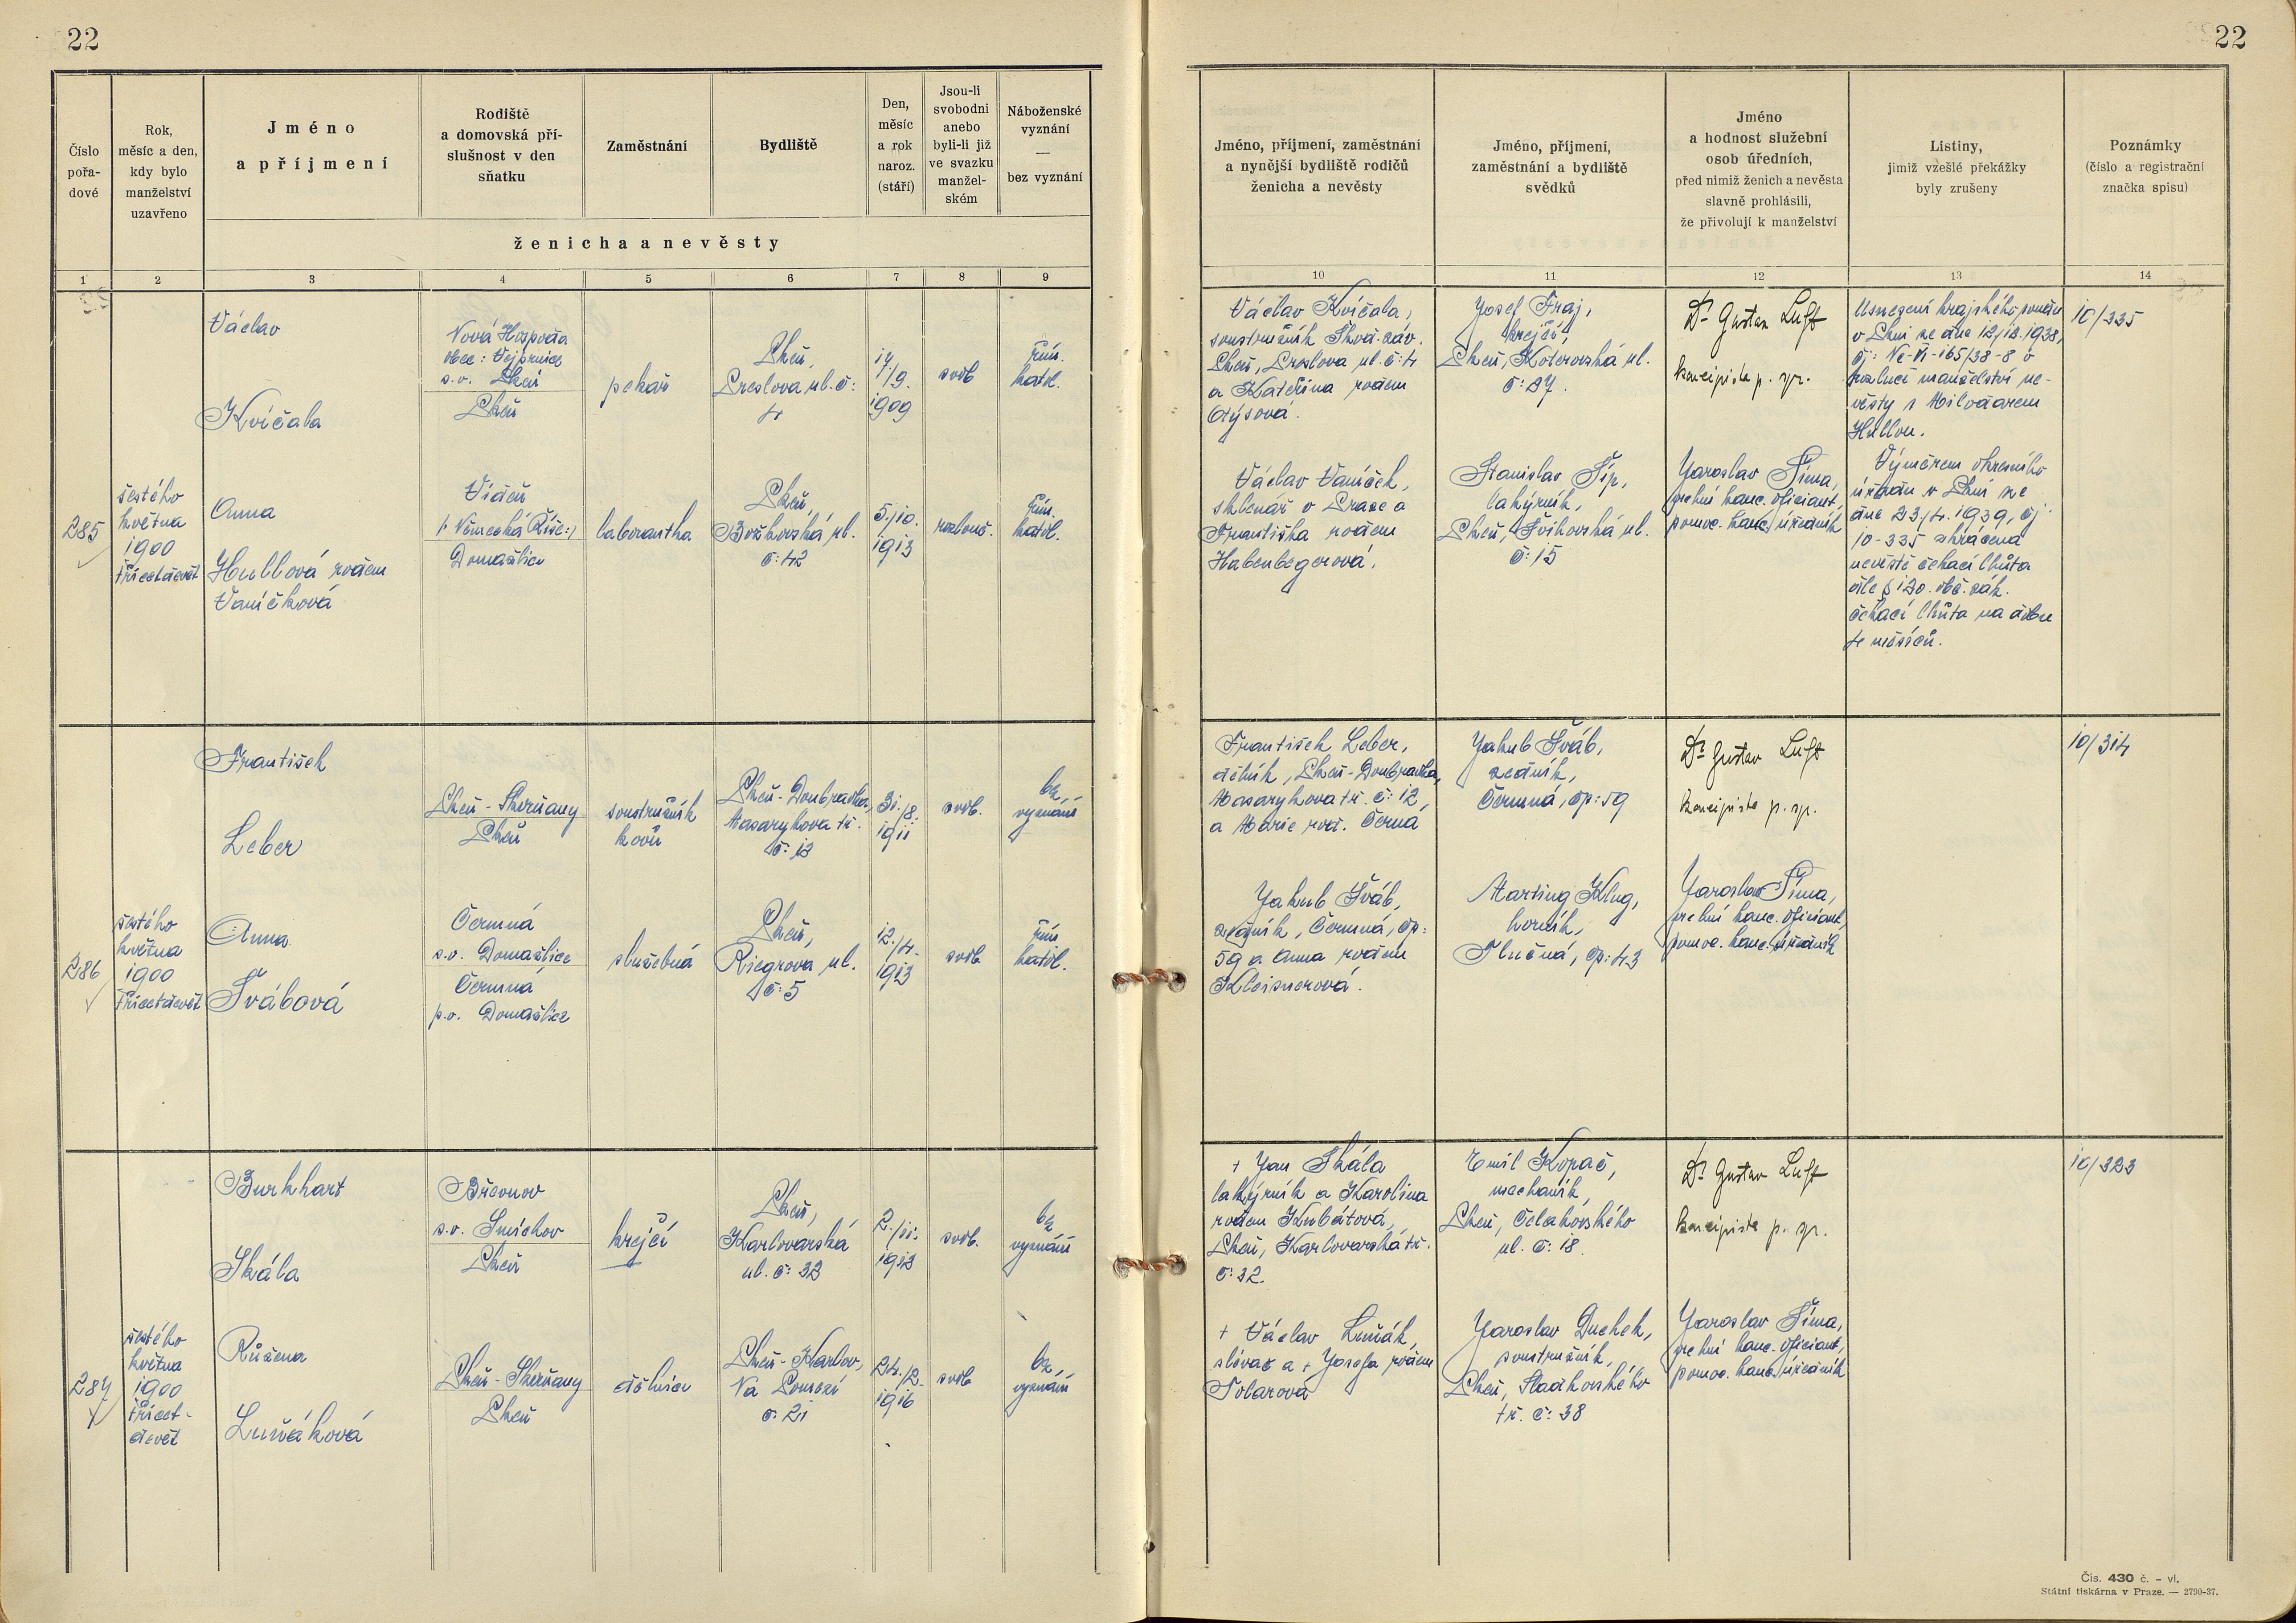 22
22
Číslo
pořa-
dové
Rok,
měsíc a den,
kdy bylo
manželství
uzavřeno
Jméno
a příjmení
Rodiště
a domovská pří-
slušnost v den
sňatku
Zaměstnání
Bydliště
Den,
měsíc
a rok
naroz.
(stáří)
Jsou-li
svobodni
anebo
byli-li již
ve svazku
manžel-
ském
Náboženské
vyznání
—
bez vyznání
ženicha a nevěsty
Jméno, příjmení, zaměstnání
a nynější bydliště rodičů
ženicha a nevěsty
Jméno, příjmení,
zaměstnání a bydliště
svědků
Jméno
a hodnost služební
osob úředních,
před nimiž ženich a nevěsta
slavně prohlásili,
že přivolují k manželství
Listiny,
jimiž vzešlé překážky
byly zrušeny
Poznámky
(číslo a registrační
značka spisu)
1 2 3 4 5 6 7 8 9 10 11 12 13 14
285
šestého
května
1900
třicetdevět
Václav
Kvíčala
Nová Hospoda
obec: Vejprnice
s.o. Plzeň
Plzeň
pekař
Plzeň,
Preslova ul. č:
4
14
/9.
1909
svob
řím.
katol.
Anna
Hullová rozem
Vaníčková
Vídeň
/: Německá Říše:/
Domažlice
laborantka
Plzeň,
Božkovská ul.
č: 42
5./10.
1913
rozlouč.
řím.
katol.
Václav Kvíčala,
soustružník Škod. záv.
Plzeň, Preslova ul. č: 4
a Kateřina rozem
Otýsová.
Václav Vaníček,
sklenář v Praze a
Františka rozem
Habenbegerová.
Josef Fraj,
krejčí,
Plzeň, Koterovská ul.
č: 27.
Stanislav Šíp,
lakýrník,
Plzeň, Švihovská ul.
č: 15
Dr Gustav Luft
koncipista p. spr.
Jaroslav Šíma,
kanc. oficiant,
pomoc. kanc. úředník
Usnesení krajského soudu
v Plzni ze dne 12/12. 1938,
čj: Nc-VI-165/38-8 o
rozluce manželství ne-
věsty s Miloďarem
Hullou.
Výměrem okresního
úřadu v Plzni ze
dne 23/4. 1939, čj.
10-335 zkrácena
nevěstě čekací lhůta
dle § 120. obč. zák.
čekací lhůta na dobu
4 měsíců.
10/335
286
šestého
května
1900
třicetdevět
František
Leber
Plzeň - Skvrňany
Plzeň
soustružník
kovů
Plzeň-Doubravka,
Masarykova tř.
č: 12
31./8.
1911
svob.
bez
vyznání
Anna
Švábová
Čermná
s.o. Domažlice
Čermná
p.o. Domažlice
služebná
Plzeň,
Riegrova ul.
č: 5
12./4.
1913
svob
řím.
katol.
František Leber,
dělník, Plzeň-Doubravka,
Masarykova tř. č: 12,
a Marie roz. Černá
Jakub Šváb,
zedník, Čermná, čp:
59 a Anna rozem
Kleisnerová.
Jakub Šváb,
zedník,
Čermná, čp: 59
Marting Klug,
horník,
Tlučná, čp: 43
Dr Gustav Luft
koncipista p. spr.
Jaroslav Šíma,
kanc. oficiant,
pomoc. kanc. úředník
10/314
287
šestého
května
1900
třicet-
devět
Burkhart
Skála
Břevnov
s.o. Smíchov
Plzeň
krejčí
Plzeň,
Karlovarská
ul. č: 32
2./11.
1912
svob.
bez
vyznání
Růžena
Luňáková
Plzeň - Skvrňany
Plzeň
dělnice
Plzeň - Karlov,
Na Pomezí
č: 21
24./2.
1916
svob
bez
vyznání
+ Jan Skála
lakýrník a Karolina
rozem Kubátová,
Plzeň, Karlovarská tř.
č: 32.
+ Václav Luňák,
slévač a + Josefa rozem
Tolarová
Emil Kopač,
mechanik,
Plzeň, Čelakovského
ul. č: 18.
Jaroslav Duchek,
soustružník,
Plzeň, Sladkovského
tř. č: 38
Dr Gustav Luft
koncipista p. spr.
Jaroslav Šíma,
kanc. oficiant,
pomoc. kanc. úředník
10/323
Čís. 430 č. - vl.
Státní tiskárna v Praze. — 2790-37.